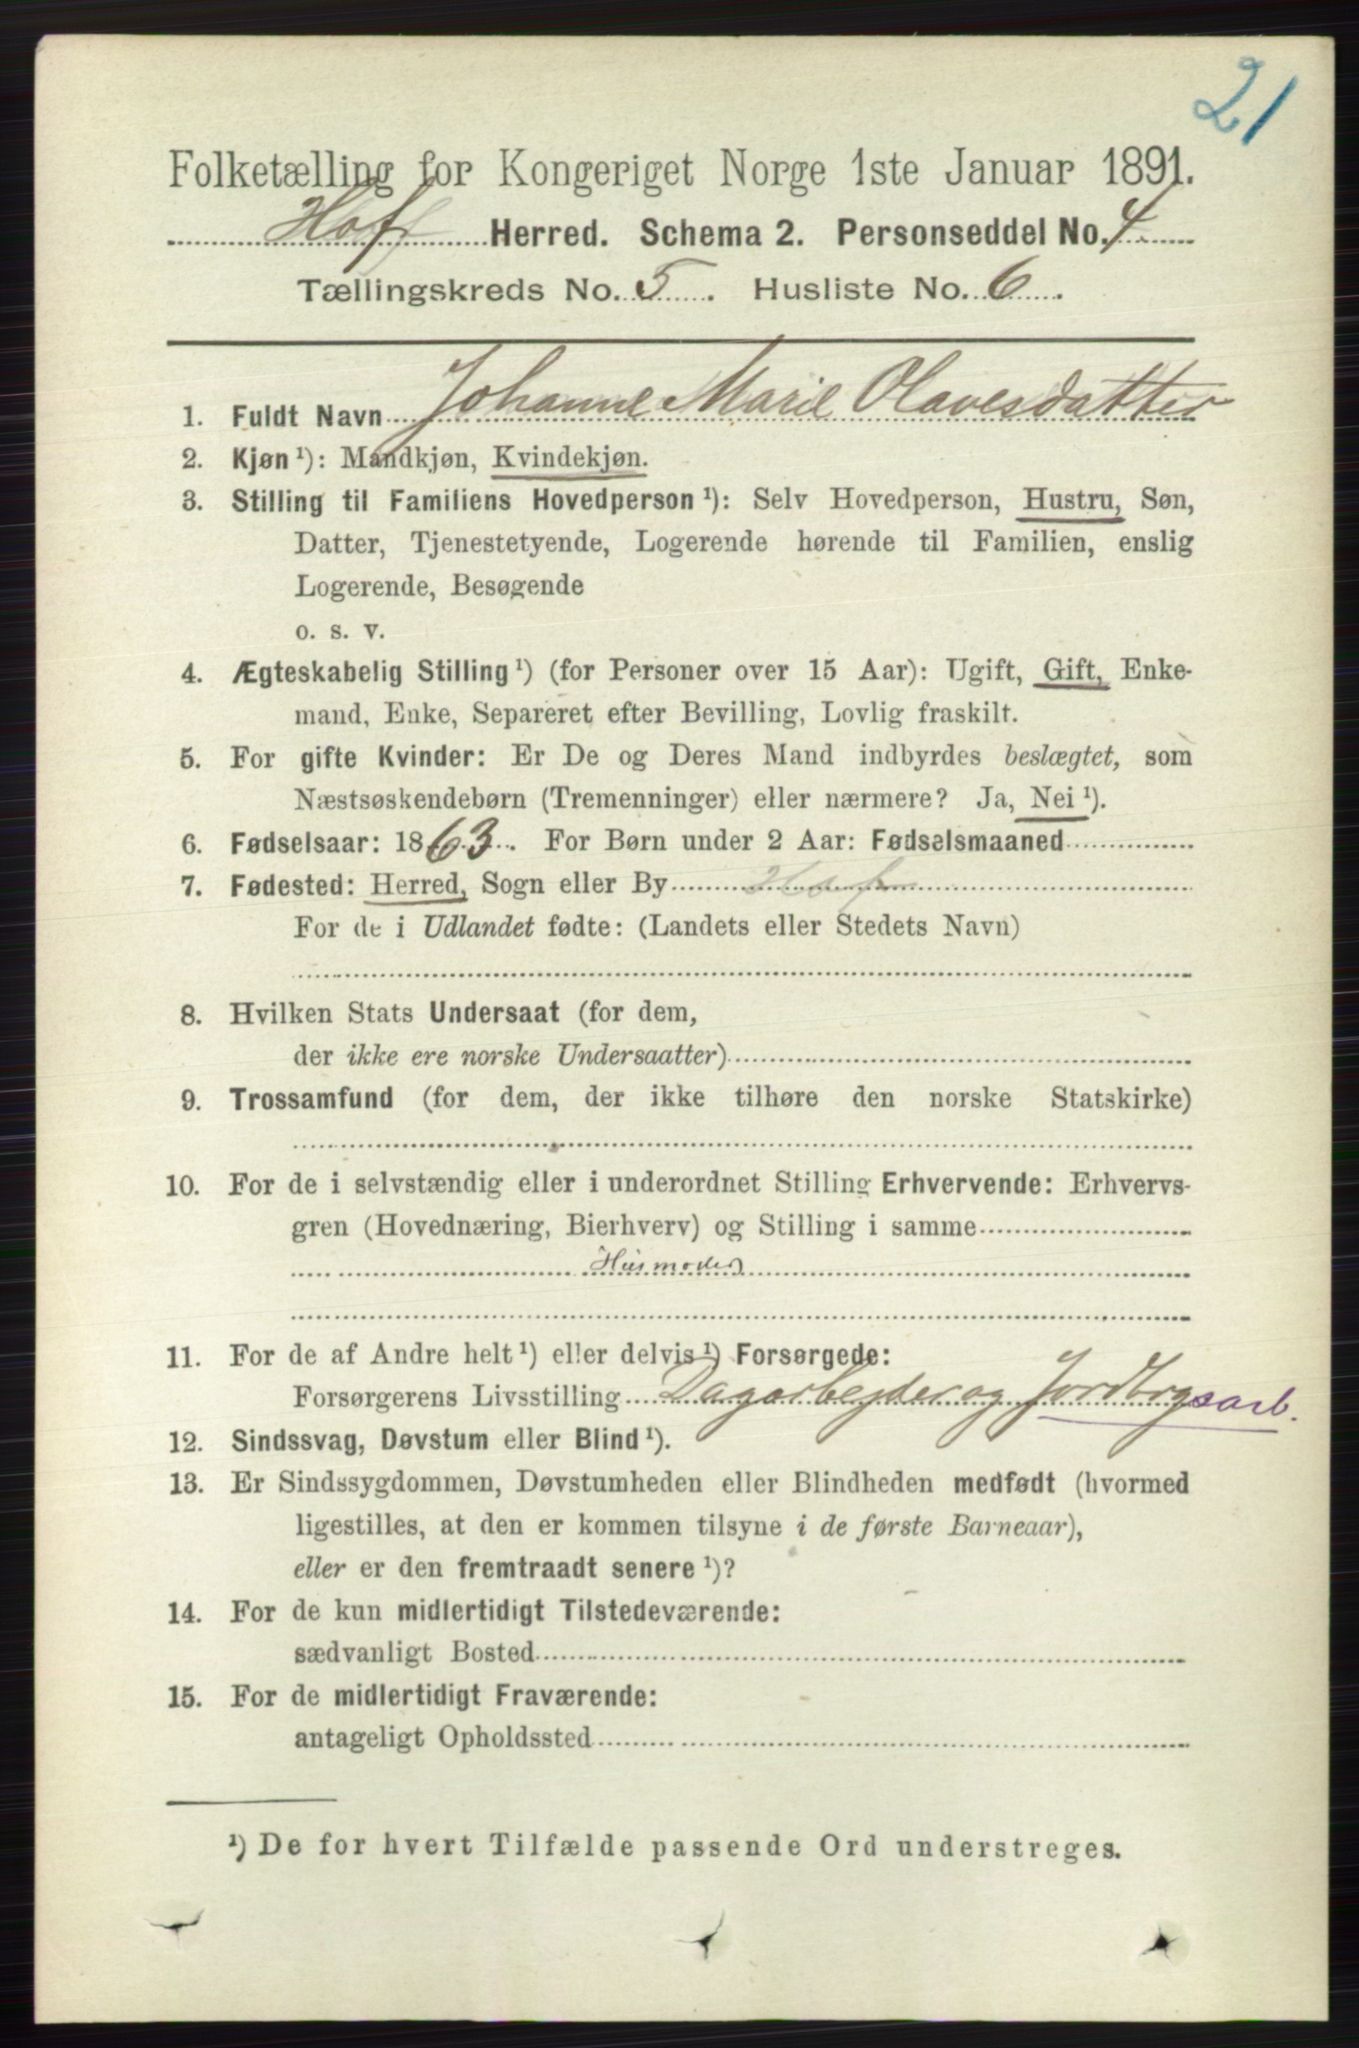 21
Folketælling for Kongeriget Norge 1ste Januar 1891.
Hof Herred. Schema 2. Personseddel No. 4
Tællingskreds No. 5. Husliste No. 6.
1. Fuldt Navn Johanne Marie Olavesdatter
2. Kjøn ¹): Mandkjøn, Kvindekjøn.
3. Stilling til Familiens Hovedperson ¹): Selv Hovedperson, Hustru, Søn,
Datter, Tjenestetyende, Logerende hørende til Familien, enslig
Logerende, Besøgende
o. s. v.
4. Ægteskabelig Stilling ¹) (for Personer over 15 Aar): Ugift, Gift, Enke-
mand, Enke, Separeret efter Bevilling, Lovlig fraskilt.
5. For gifte Kvinder: Er De og Deres Mand indbyrdes beslægtet, som
Næstsøskendebørn (Tremenninger) eller nærmere? Ja, Nei ¹).
6. Fødselsaar: 1863. For Børn under 2 Aar: Fødselsmaaned
7. Fødested: Herred, Sogn eller By Hof
For de i Udlandet fødte: (Landets eller Stedets Navn)
8. Hvilken Stats Undersaat (for dem,
der ikke ere norske Undersaatter)
9. Trossamfund (for dem, der ikke tilhøre den norske Statskirke)
10. For de i selvstændig eller i underordnet Stilling Erhvervende: Erhvervs-
gren (Hovednæring, Bierhverv) og Stilling i samme
Husmoder
11. For de af Andre helt ¹) eller delvis ¹) Forsørgede:
Forsørgerens Livsstilling Dagarbejder og Jordbrugsarb.
12. Sindssvag, Døvstum eller Blind ¹).
13. Er Sindssygdommen, Døvstumheden eller Blindheden medfødt (hvormed
ligestilles, at den er kommen tilsyne i de første Barneaar),
eller er den fremtraadt senere ¹)?
14. For de kun midlertidigt Tilstedeværende:
sædvanligt Bosted
15. For de midlertidigt Fraværende:
antageligt Opholdssted
¹) De for hvert Tilfælde passende Ord understreges.